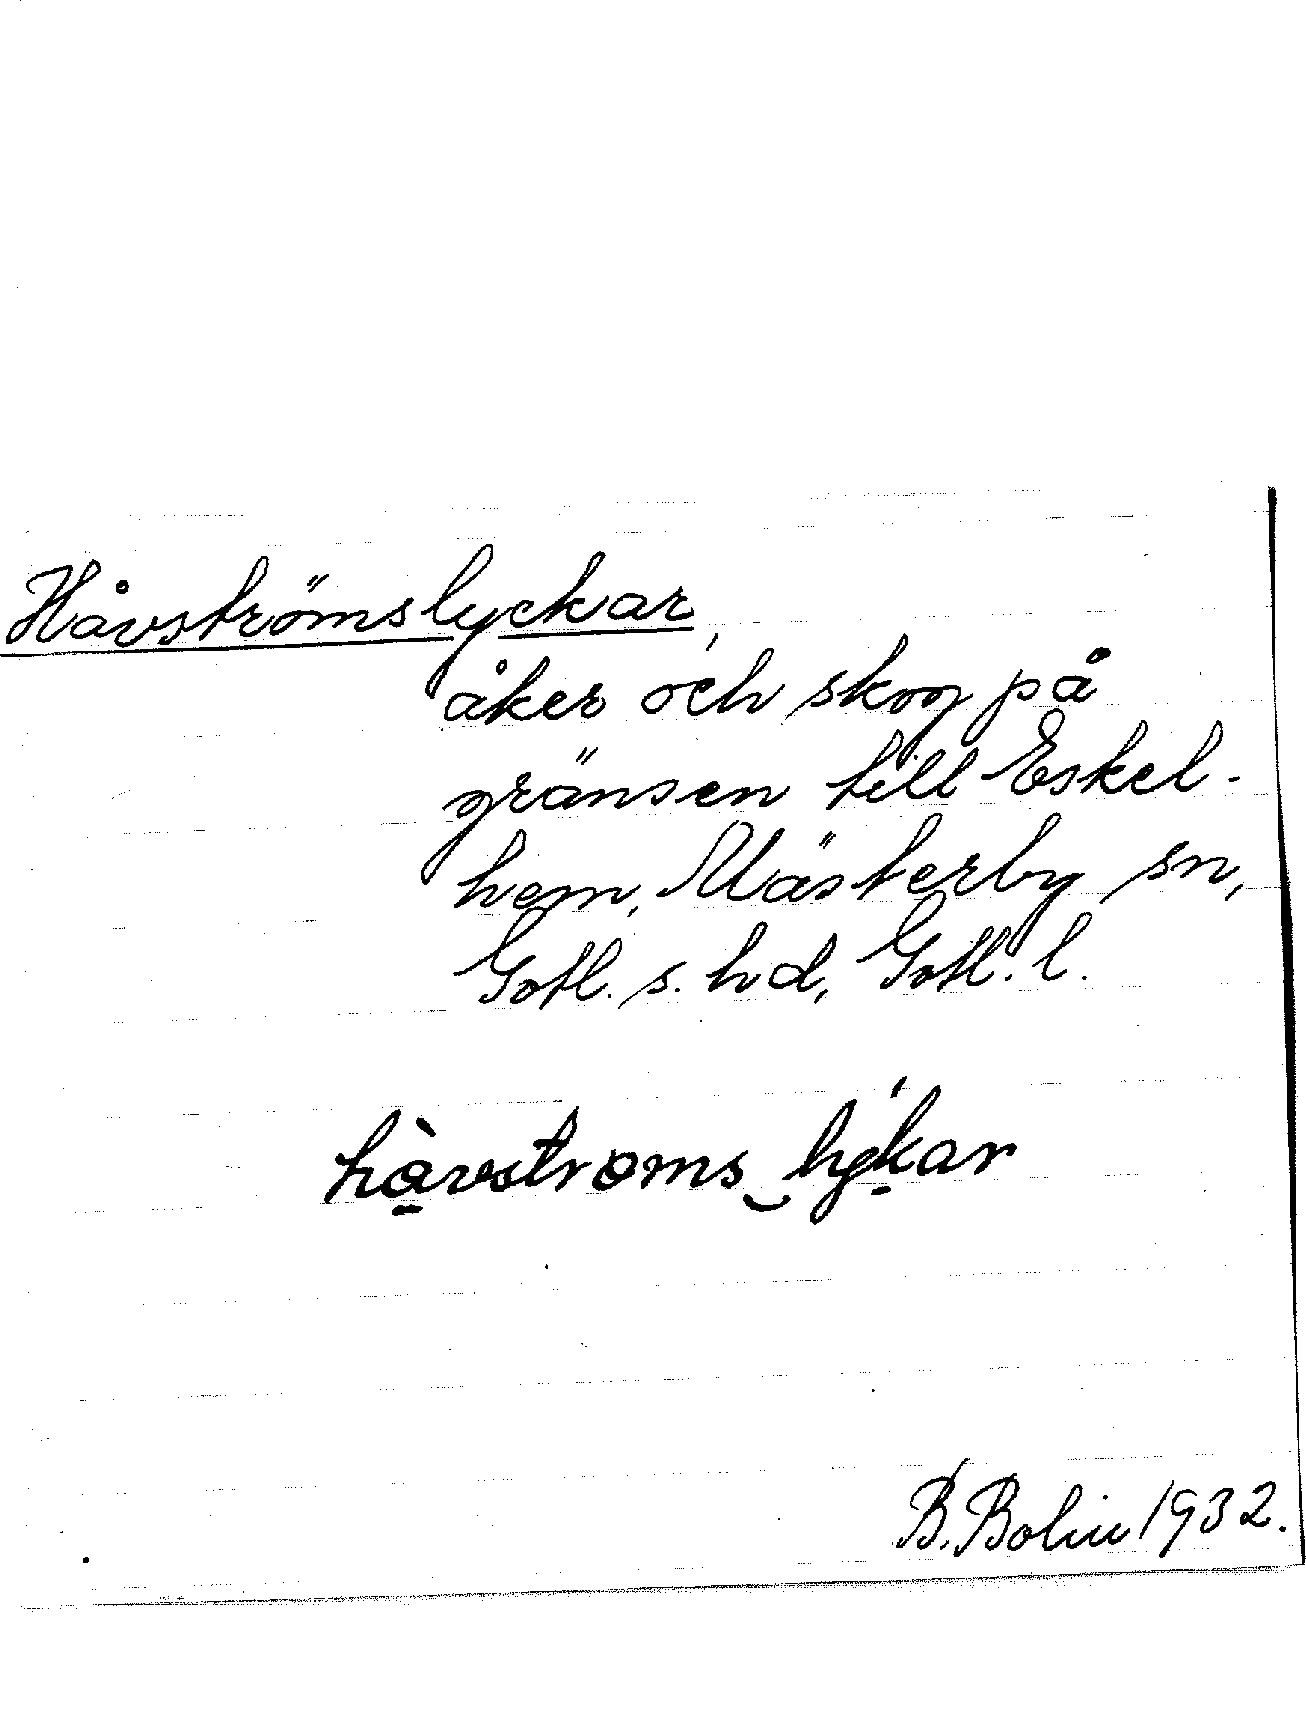 Håvströmslyckar,
åker och skog på
gränsen till Eskel-
hem, Mästerby sn,
Gotl. s. hd, Gotl. l.
hàvstroms lykar
B. Bolin 1932.